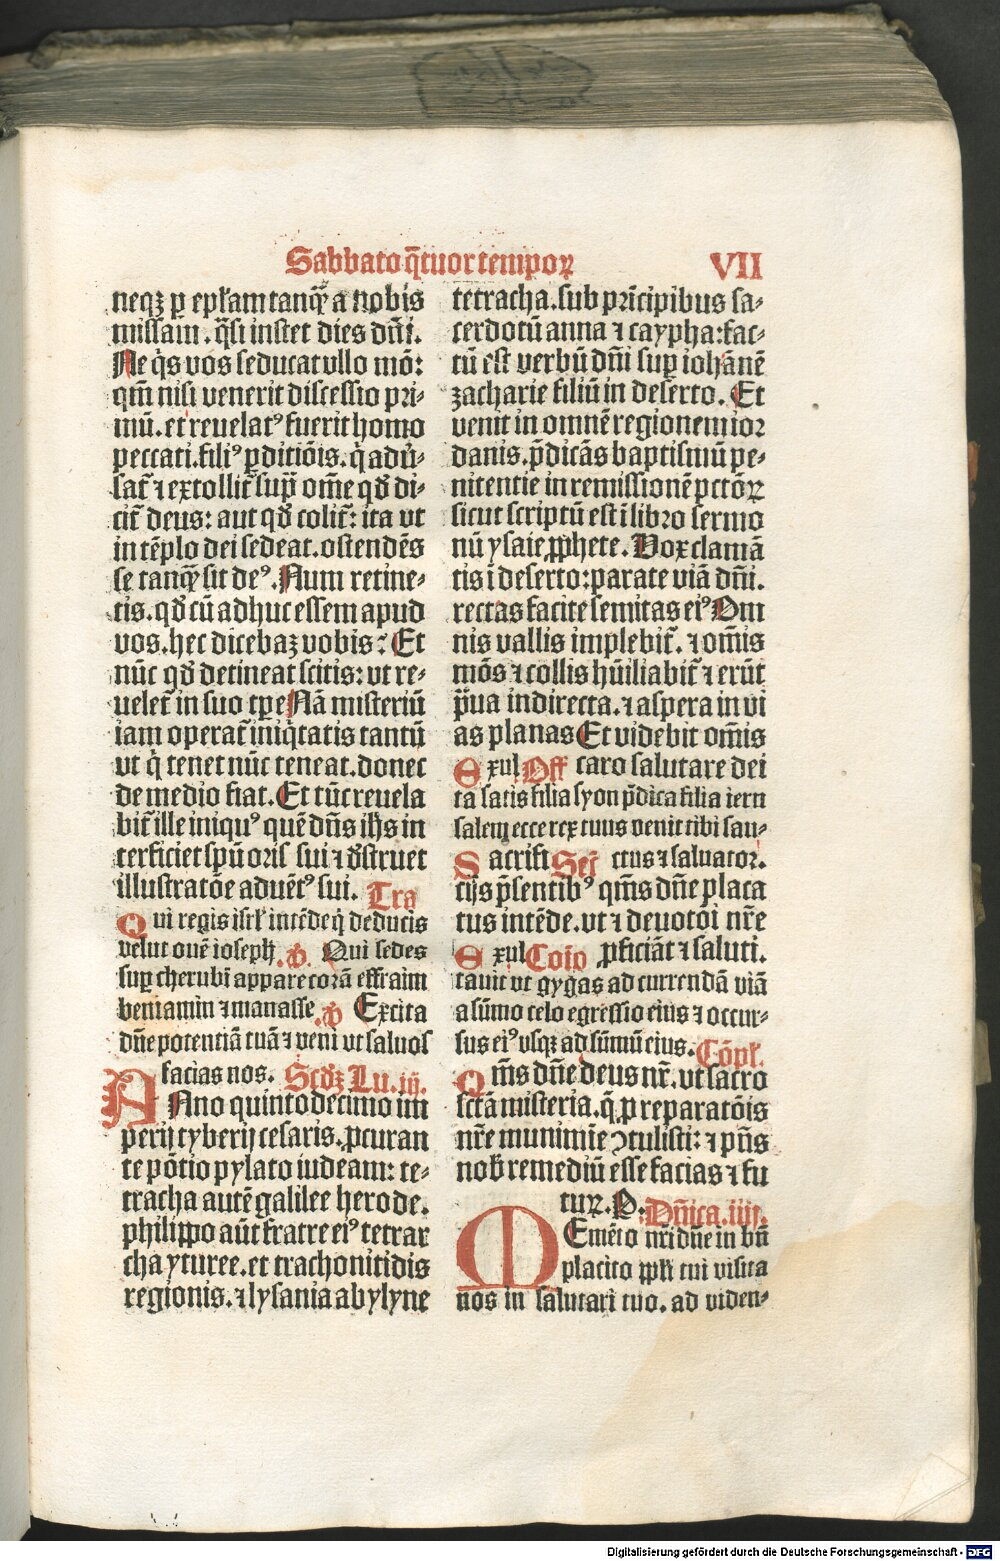 Sabbato q̄tuor tempoꝝ VII
neqꝫ ꝑ epl̄am tanq̄ a nobis
missam . q̄si instet dies dn̄i.
Ne q̇s vos seducat vllo mō:
qm̄ nisi venerit discessio pri-
mū. et reuelatꝰ fuerit homo
peccati. filiꝰ ꝑditiōis. q̇ adu̇-
sat̄ ⁊ extollit̄ sup̄ om̄e qd̄ di-
cit̄ deus: aut qd̄ colit̄: ita vt
in tēplo dei sedeat. ostendēs
se tanq̄ sit deꝰ. Num retine-
tis. qd̄ cū adhuc essem apud
vos. hec dicebaꝫ vobis: Et
nūc qd̄ detineat scitis: vt re-
uelet̄ in suo tꝑe Nā misteriū
iam operat̄ iniq̇tatis tantū
vt q̇ tenet nūc teneat. donec
de medio fiat. Et tūc reuela
bit̄ ille iniquꝰ quē dn̄s ih̄s in
terficiet spū oris sui ⁊ dstruet
illustratōe aduētꝰ sui. Tra
Qui regis isrl̄ intēde q̇ deducis
velut ouē ioseph. ꝟ. Qui sedes
sup̄ cherubī appare corā effraim
beniamin ⁊ manasse. ꝟ Excita
dn̄e potentiā tuā ⁊ veni vt saluos
facias nos. Scd̄ꝫ Lu. iij.
ANno quintodecimo im
perij tyberij cesaris. ꝓcuran
te pōtio pylato iudeam: te-
tracha autē galilee herode.
philippo aūt fratre eiꝰ tetrar
cha yturee. et trachonitidis
regionis. ⁊ lysania abylyne
tetracha. sub prīcipibus sa-
cerdotū anna ⁊ caypha: fac-
tū est verbū dn̄i sup̄ iohānē
zacharie filiū in deserto. Et
venit in omnē regionem ior
danis. p̄dicās baptismū pe-
nitentie in remissionē pctōꝝ
sicut scriptū est ī libro sermo
nū ysaie ꝓphete. Vox clamā
tis ī deserto: parate viā dn̄i.
rectas facite semitas eiꝰ Om
nis vallis implebit̄. ⁊ om̄is
mōs ⁊ collis hūiliabit̄ ⁊ erūt
p̄ua in directa. ⁊ aspera in vi
as planas Et videbit om̄is
Exul Off caro salutare dei
ta satis filia syon p̄dica filia ieru
salem ecce rex tuus venit tibi san-
Sacrifi Secr̄ ctus ⁊ saluator.
cijs p̄sentibꝰ qm̄s dn̄e placa
tus intēde. vt ⁊ deuotōi nr̄e
Exul Cōio ꝓficiāt ⁊ saluti.
tauit vt gygas ad currendā viā
a sūmo celo egressio eius ⁊ occur-
sus eiꝰ vsqꝫ ad sūmū eius. Cōpl̄.
Qm̄s dn̄e deus nr̄. vt sacro
sctā misteria. q̄ ꝓ reparatōis
nr̄e munimīe ꝯtulisti: ⁊ pn̄s
nob̄ remediū esse facias ⁊ fu
turꝝ. P. Dn̄ica. iiij.
MEmēto nr̄i dn̄e in bn̄
placito ppl̄i tui visita
nos in salutari tuo. ad viden-
Digitalisierung gefördert durch die Deutsche Forschungsgemeinschaft - DFG